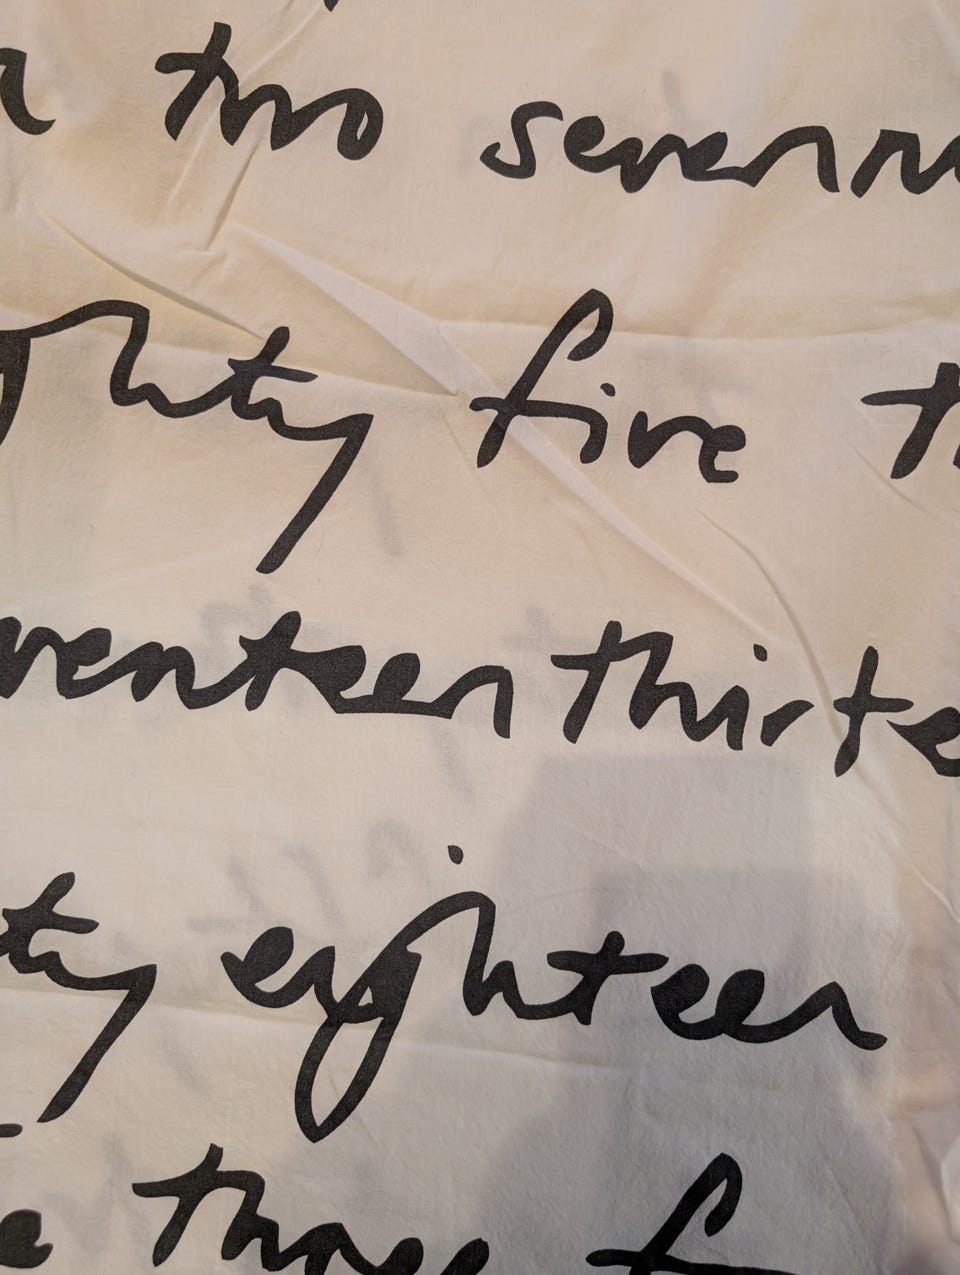 two seven
ghty five th
venteen thirte
ty eighteen
e three f